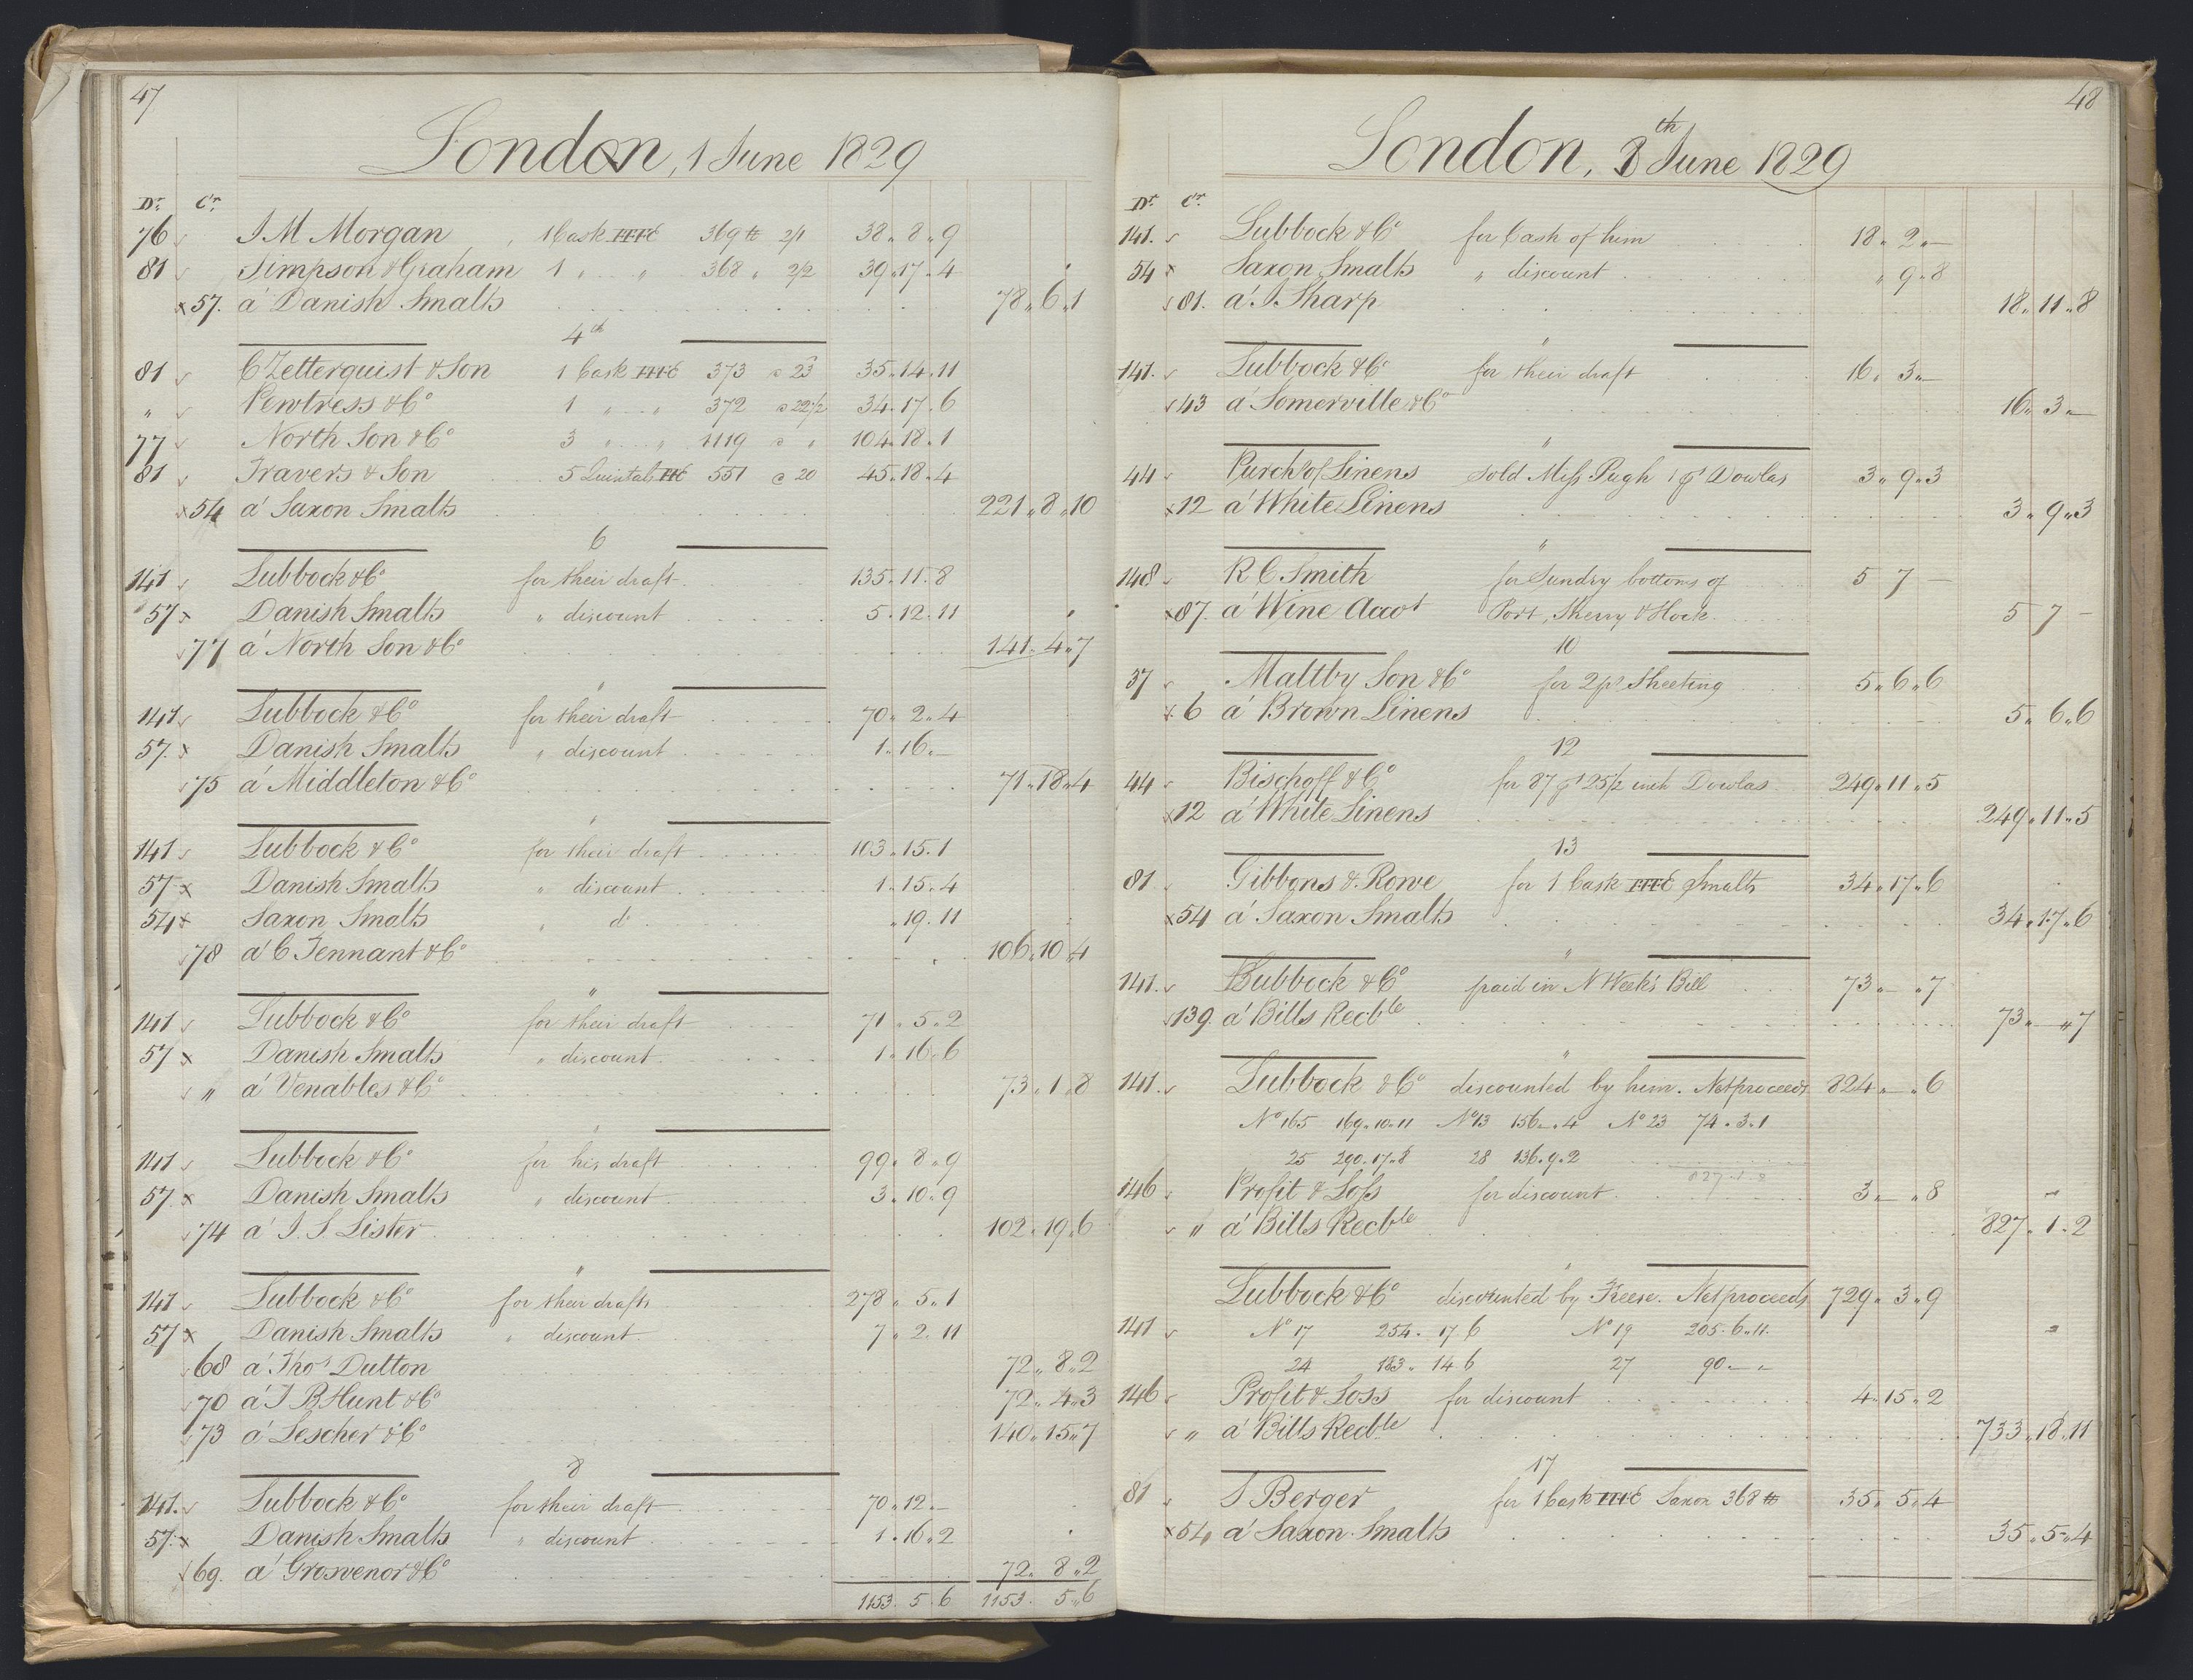 47
London, 1 June 1829
Dr. Cr.
76 J M Morgan 1 Cask FFFE 369 lb 2/1 38 " 8 " 9
81 Simpson & Graham 1 " " 368 " 2/2 39 " 17 " 4
57. a Danish Smalts 78 " 6 " 1
4th
81 C Zetterquist & Son 1 Cask FFFE 373 @ 23 35 " 14 " 11
" Pewtress & Co 1 " " 372 @ 22 1/2 34 " 17 " 6
77 North Son & Co 3 " " 1119 @ " 104 " 18 " 1
81 Travers & Son 5 Quintals FFE 551 @ 20 45 " 18 " 4
54 a Saxon Smalts 221 " 8 " 10
6
141 Lubbock & Co for their draft 135 " 11 " 8
57 Danish Smalts " discount 5 " 12 " 11
77 a North Son & Co 141 " 4 " 7
"
141 Lubbock & Co for their draft 70 " 2 " 4
57. Danish Smalts " discount 1 " 16 " –
75 a Middleton & Co 71 " 18 " 4
"
141 Lubbock & Co for their draft 103 " 15 " 1
57 Danish Smalts " discount 1 " 15 " 4
54 Saxon Smalts " do " 19 " 11
78 a C Tennant & Co 106 " 10 " 4
"
141 Lubbock & Co for their draft 71 " 5 " 2
57 Danish Smalts " discount 1 " 16 " 6
" a Venables & Co 73 " 1 " 8
"
141 Lubbock & Co for his draft 99 " 8 " 9
57. Danish Smalts " discount 3 " 10 " 9
74 a J. S. Lister 102 " 19 " 6
"
141 Lubbock & Co for their drafts 278 " 5 " 1
57 Danish Smalts " discount 7 " 2 " 11
68 a Thos Dutton 72 " 8 " 2
70 a J B Hunt & Co 72 " 4 " 3
73 a Lescher & Co 140 " 15 " 7
8
141. Lubbock & Co for their draft 70 " 12 " –
57. Danish Smalts " discount 1 " 16 " 2
69. a Grosvenor & Co 72 " 8 " 2
1153 " 5 " 6 1153 " 5 " 6
48
London, 8th June 1829
Dr. Cr.
141. Lubbock & Co for Cash of him 18 " 2 " –
54 Saxon Smalts " discount " 9 " 8
81. a J Sharp 18 " 11 " 8
"
141. Lubbock & Co for their draft 16 " 3 " –
43 a Somerville & Co 16 " 3 " –
"
44 Purchs of Linens sold Miss Pugh 1 ps Dowlas 3 " 9 " 3
12 a White Linens 3 " 9 " 3
"
148 R C Smith for Sundry bottoms of 5 7 –
87. a Wine Accot Port, Sherry & Hock 5 7 –
10
37 Maltby Son & Co for 2 ps Sheeting 5 " 6 " 6
6 a Brown Linens 5 " 6 " 6
12
44 Bischoff & Co for 87 ps 25 1/2 inch Dowlas 249 " 11 " 5
12 a White Linens 249 " 11 " 5
13
81 Gibbons & Rowe for 1 Cask FFFE Smalts 34 " 17 " 6
54 a Saxon Smalts 34 " 17 " 6
"
141. Lubbock & Co paid in N Week's Bill 73 " – " 7
139. a Bills Recble 73 " – " 7
"
141. Lubbock & Co discounted by him. Netproceeds 824 " – " 6
No 165 169 " 10 " 11 No 13 156 " – " 4 No 23 74 " 3 " 1
25 290 " 17 " 8 28 136 " 9 " 2
827 " 1 " 2
146 Profit & Loss for discount 3 " – " 8
" a Bills Recble 827 " 1 " 2
"
Lubbock & Co discounted by Freese. Netproceeds 729 " 3 " 9
141 No 17 254 " 17 " 6 No 19 205 " 6 " 11
24 183 " 14 " 6 27 90 " – " –
146 Profit & Loss for discount 4 " 15 " 2
" a Bills Recble 733 " 18 " 11
17
81 S Berger for 1 Cask FFFE Saxon 368 lb 35 " 5 " 4
54 a Saxon Smalts 35 " 5 " 4